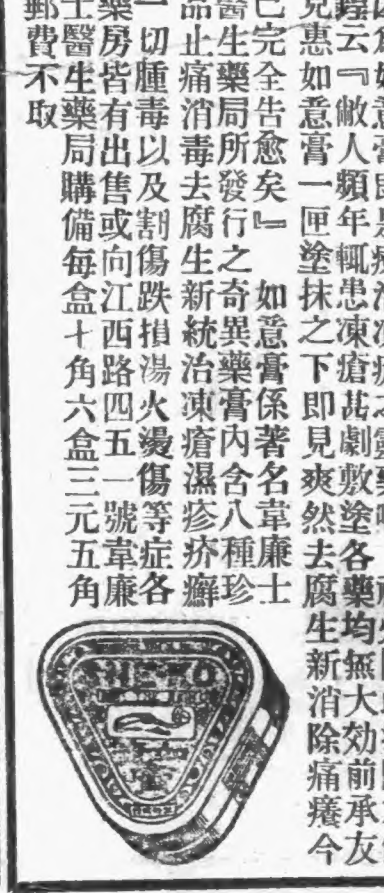 云『敝人頻年輒患凍瘡甚劇敷塗各藥均無大効前承友
見惠如意膏一匣塗抹之下即見爽然去腐生新消除痛癢今
已完全告愈矣』 如意膏係著名韋廉士
醫生藥局所發行之奇異藥膏內含八種珍
品止痛消毒去腐生新統治凍瘡濕疹疥癬
一切腫毒以及割傷跌損湯火燙傷等症各
藥房皆有出售或向江西路四五一號韋廉
士醫生藥局購備每盒七角六盒三元五角
郵費不取